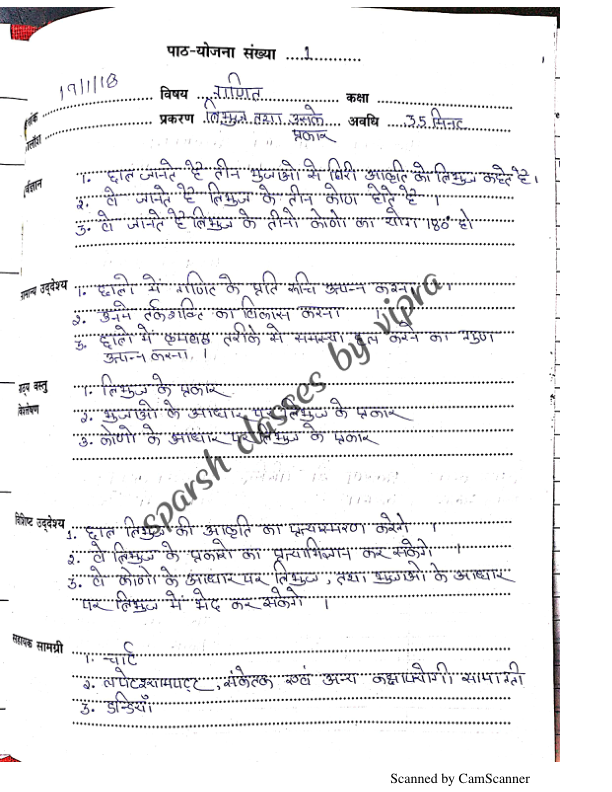 पाठ-योजना संख्या ....1............
19/1/18
विषय ...गणित............ कक्षा ...............
प्रकरण ..त्रिभुज तथा उसके अवधि ...35 मिनट
प्रकार
1. छात्र जानते है तीन भुजाओ से घिरी आकृति को त्रिभुज कहते है।
2. वे जानते है त्रिभुज के तीन कोण होते है ।
3. वे जानते है त्रिभुज के तीनो कोणो का योग 180° हो
सामान्य उद्देश्य 1. छात्रो मे गणित के प्रति रुचि उत्पन्न करना ।
2. उनमे तर्कशक्ति का विकास करना ।
3. छात्रो मे क्रमबद्ध तरीके से समस्या हल करने का गुण
उत्पन्न करना ।
वस्तु 1. त्रिभुज के प्रकार
विश्लेषण 2. भुजाओ के आधार पर त्रिभुज के प्रकार
3. कोणो के आधार पर त्रिभुज के प्रकार
sparsh classes by vipra
विशिष्ट उद्देश्य 1. छात्र त्रिभुज की आकृति का प्रत्यास्मरण करेगे ।
2. वे त्रिभुज के प्रकारो का प्रत्याभिज्ञान कर सकेगे ।
3. वे कोणो के आधार पर त्रिभुज, तथा भुजाओ के आधार
पर त्रिभुज में भेद कर सकेगे ।
सहायक सामग्री
1. चार्ट
2. लपेटश्यामपट्ट, संकेतक एवं अन्य कक्षोपयोगी सामाग्री
3. डन्डियाँ
Scanned by CamScanner